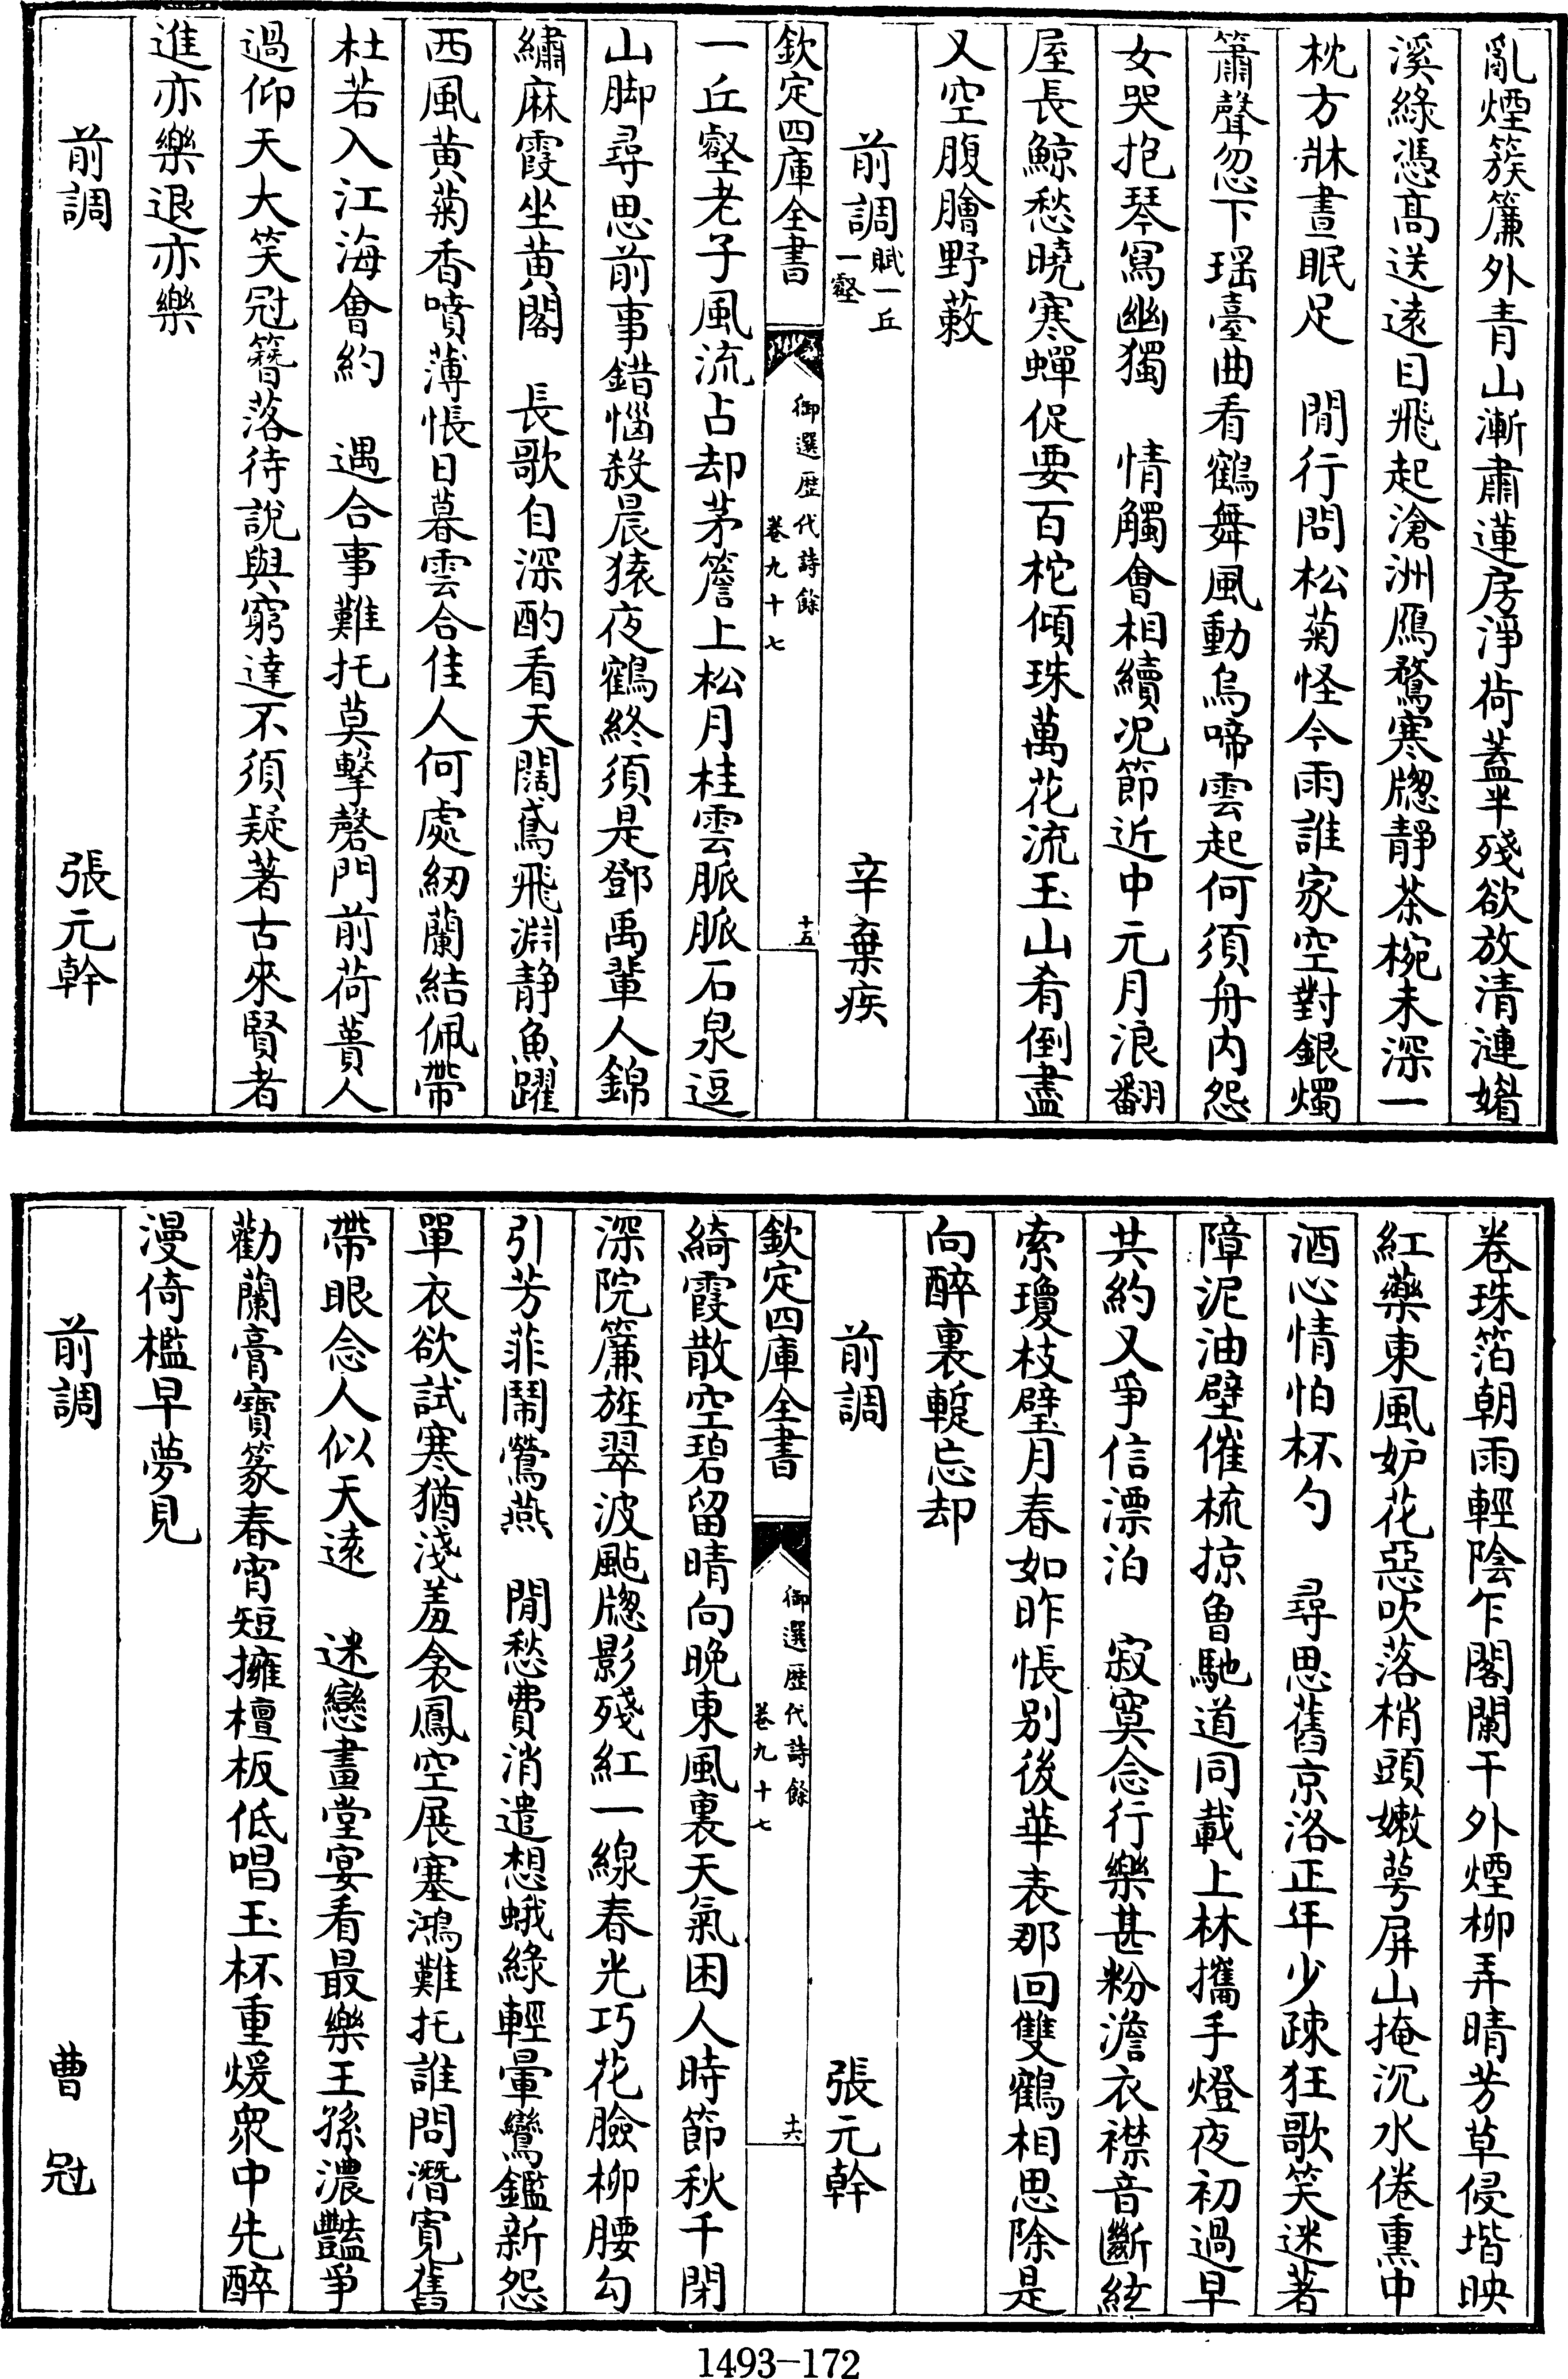 亂煙簇簾外青山漸肅蓮房淨荷蓋半殘欲放清漣媚
溪綠憑髙送逺目飛起滄洲鴈鶩寒牕靜茶椀未深一
枕方牀晝眠足　閒行問松菊怪今雨誰家空對銀燭
簫聲忽下瑶臺曲看鶴舞風動烏啼雲起何須舟内怨
女哭抱琴寫幽獨　情觸會相續况節近中元月浪翻
屋長鯨愁曉寒蟬促要百柁傾珠萬花流玉山肴倒盡
又空腹膾野蔌
前調賦一丘一壑　辛棄疾
欽定四庫全書　御選歴代詩餘　卷九十七　十五
一丘壑老子風流占却茅簷上松月桂雲脈脈石泉逗
山脚尋思前事錯惱殺晨猿夜鶴終須是鄧禹輩人錦
繡麻霞坐黄閣　長歌自深酌看天闊鳶飛淵静魚躍
西風黄菊香噴薄悵日暮雲合佳人何處紉蘭結佩帶
杜若入江海會約　遇合事難托莫擊磬門前荷蕢人
過仰天大笑冠簪落待說與窮達不須疑著古來賢者
進亦樂退亦樂
前調　張元幹
卷珠箔朝雨輕陰乍閣闌干外煙柳弄晴芳草侵堦映
紅藥東風妒花惡吹落梢頭嫩萼屏山掩沉水倦熏中
酒心情怕杯勺　尋思舊京洛正年少疎狂歌笑迷著
障泥油壁催梳掠曾馳道同載上林攜手燈夜初過早
共約又爭信漂泊　寂寞念行樂甚粉澹衣襟音斷絃
索瓊枝璧月春如昨悵别後華表那回雙鶴相思除是
向醉裏蹔忘却
前調　張元幹
欽定四庫全書　御選歴代詩餘　卷九十七　十六
綺霞散空碧留晴向晚東風裏天氣困人時節秋千閉
深院簾旌翠波颭牕影殘紅一線春光巧花臉柳腰勾
引芳菲鬧鶯燕　閒愁費消遣想蛾綠輕暈鸞鑑新怨
單衣欲試寒猶淺羞衾鳳空展塞鴻難托誰問潛寬舊
帶眼念人似天逺　迷戀畫堂宴看最樂王孫濃豔爭
勸蘭膏寶篆春宵短擁檀板低唱玉杯重煖衆中先醉
漫倚檻早夢見
前調　曹冠
1493-172